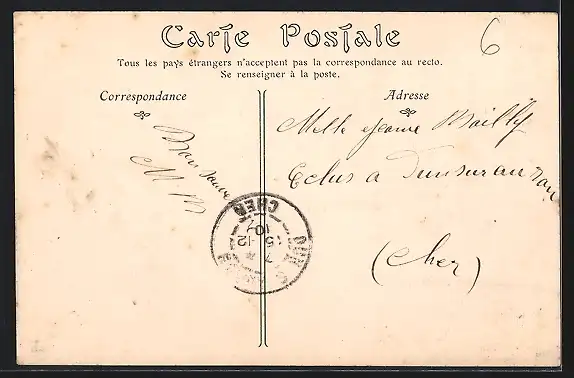 Carte Postale
6
Tous les pays étrangers n'acceptent pas la correspondance au recto.
Se renseigner à la poste.
Correspondance
Adresse
Bon
M M
Melle Jeanne Bailly
Eclus a Dunsurauron
(Cher)
CHER
10
15-12
7
DUN S